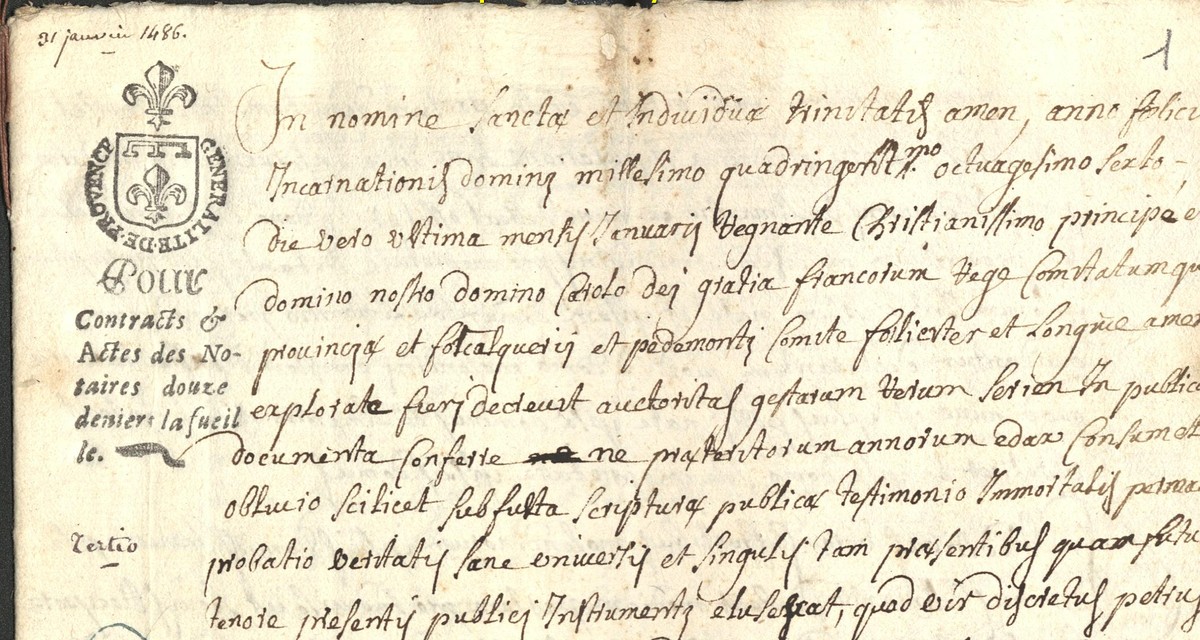 31 janvier 1486.
1
GENERALITE·DE·PROVENCE
Pour
Contracts &
Actes des No-
taires douze
deniers la fueil
le.
Tertio
In nomine sanctæ et Individuæ trinitatis amen, anno felici
Incarnationis dominj millesimo quadringentmo octuagesimo sexto-
Die vero ultima mensis Januarij Regnante Christianissimo principe e
domino nostro domino Carolo dej gratia francorum Rege Comitatumqu
provinciæ et folcalquerij et pedemontis Comite foeliciter et longeue amen
explorate fierj decreuit auctoritas gestarum Rerum serien In publica
documenta conferre ne præteritorum annorum edax Consumat
oblivio scilicet subfulta scripturæ publicæ testimonio Immortalis perma
probatio veritatis sane universis et singulis tam præsentibus quam futu
tenore presentis publicj Instrumentj elusescat, quod vir discretus petrus